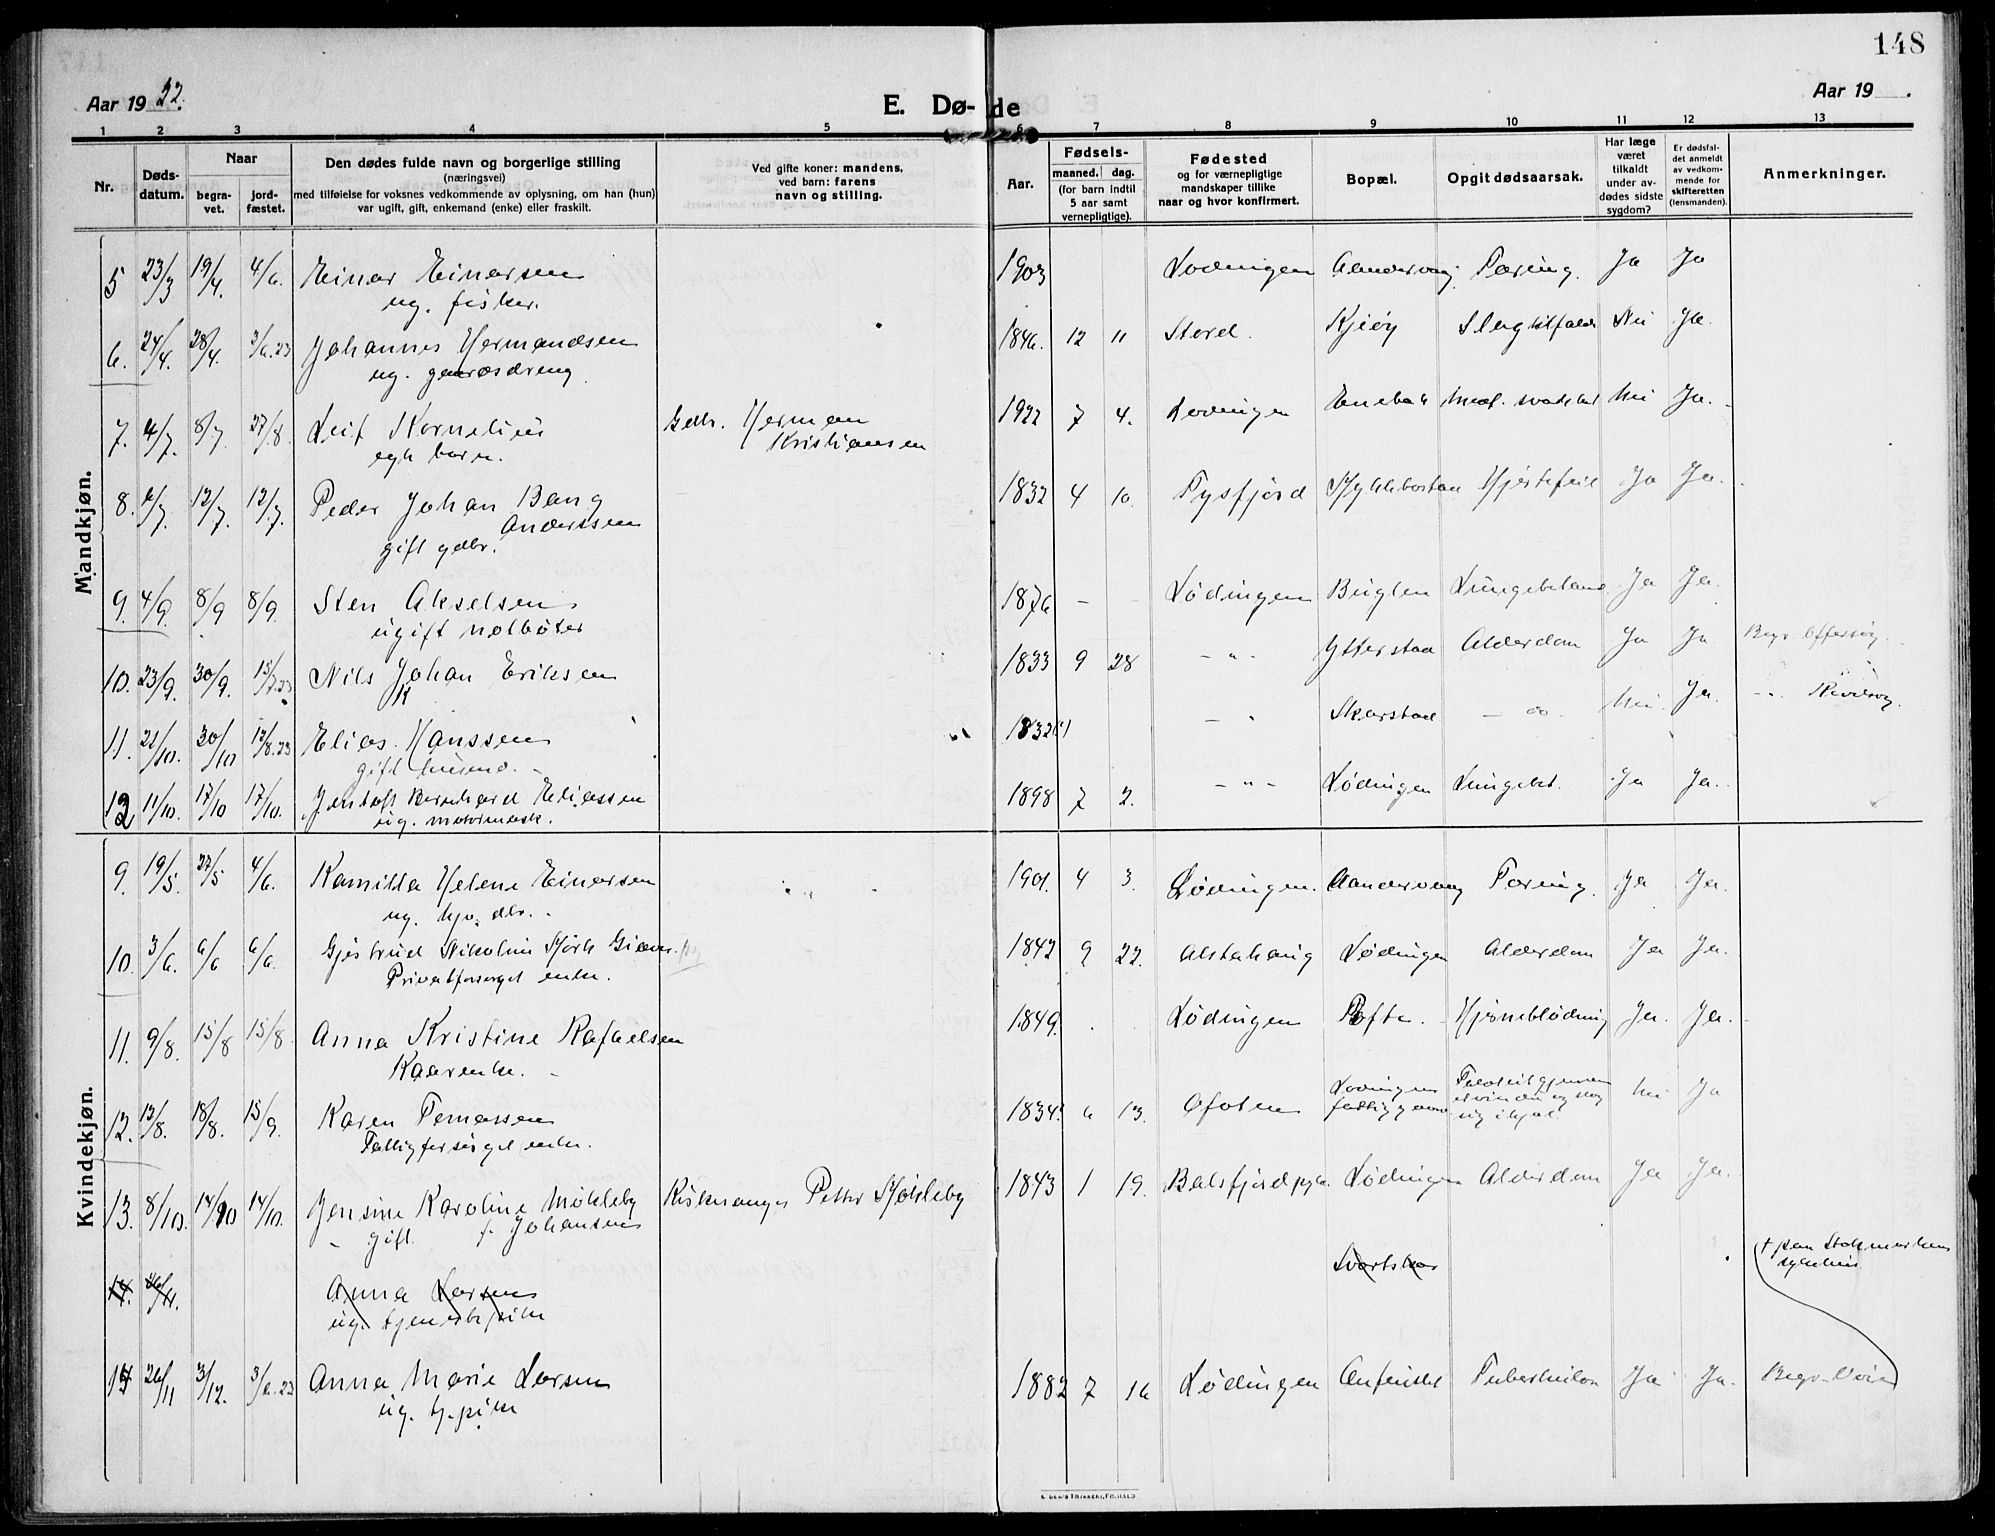 148
Aar 19 22.
E. Dø-
de
Aar 19 .
1 2 3 4 5 6 7 8 9 10 11 12 13
Nr.
Døds-
datum.
Naar
begra-
vet.
jord-
fæstet.
Den dødes fulde navn og borgerlige stilling
(næringsvei)
med tilføielse for voksnes vedkommende av oplysning, om han (hun)
var ugift, gift, enkemand (enke) eller fraskilt.
Ved gifte koner: mandens,
ved barn: farens
navn og stilling.
Aar.
Fødsels-
maaned. dag.
(for barn indtil
5 aar samt
vernepligtige).
Fødested
og for værnepligtige
mandskaper tillike
naar og hvor konfirmert.
Bopæl.
Opgit dødsaarsak.
Har læge
været
tilkaldt
under av-
dødes sidste
sygdom?
Er dødsfal-
det anmeldt
av vedkom-
mende for
skifteretten
(lensmanden).
Anmerkninger.
Mandkjøn.
5 23/3 19/4. 4/6. Einar Einarsen 1903 Lødingen Tæring. Ja Ja
ug. fisker.
6. 24/4. 28/4. 3/6.23 Johannes Hermandsen 1846. 12 11 Stord. Kjeøy Slagtilfælde Nei Ja.
ug.
7. 4/7. 8/7. 27/8. Leif Kornelius Gdbr. Herman 1922 7 4. Lødingen Nei Ja.
egte barn. Kristiansen
8. 6/7. 12/7. 12/7. Peder Johan Bang 1832 4 10. Tysfjord Hjertefeil Ja Ja.
Anderssen
gift gdbr.
9. 4/9. 8/9 8/9. Sten Akselsen 1876 - - Lødingen Lungebetænd Ja Ja.
ugift notbøter
10. 23/9. 30/9. Nils Johan Eriksen 1833 9 28 - " - Ytterstad Alderdom Ja Ja Begr. Offersøy.
K
11. 30/10 12/8.23 Elias Hanssen 1832 - " Skarstad - do - Nei. Ja
gift husmd. -
12 11/10. 17/10 17/10. Jentoft Bernhard Eliassen 1898 7 2. - " - Lødingen Lungebet. Ja Ja.
ug. motormask.
Kvindekjøn.
9. 19/5. 27/5 4/6. Kamilla Helene Einarsen 1901. 4 3. Lødingen. Tæring. Ja Ja.
ug.
10. 3/6. 6/6 6/6. Gjertrud Nikoline Mørk Giæver. 1842 9 22. Alstahaug Lødingen Alderdom Ja Ja.
Privatforsørget enke.
11. 9/8. 15/8 15/8. Anna Kristine Rafaelsen 1849. Lødingen Hjerneblødning Ja. Ja.
Kaarenke. -
12. 13/8. 18/8. 15/9. Karen Tomassen 1834. 6 13. Ofoten Lødingen Nei Ja
Fattigforsørget enke. sig ihjel.
13. 8/10. 14/10 14/10. Jensine Karoline Møkleby Kirkesanger Petter Møkleby 1843 1 19. Balsfjord Lødingen Alderdom Ja Ja.
- gift. f. Johansen
14. 26/11. Anna Larsen † paa Stokmarknes
ug. tjenestepike sykehus
14 26/11 3/12. 3/6.23 Anna Marie Larsen 1882 7 16 Lødingen Tuberkulose Ja Ja.
ug. tj.pike